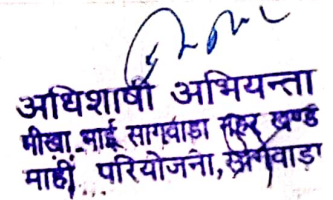 अधिशाषी अभियन्ता
भीखा भाई सागवाड़ा नहर खण्ड
माही परियोजना, सागवाड़ा